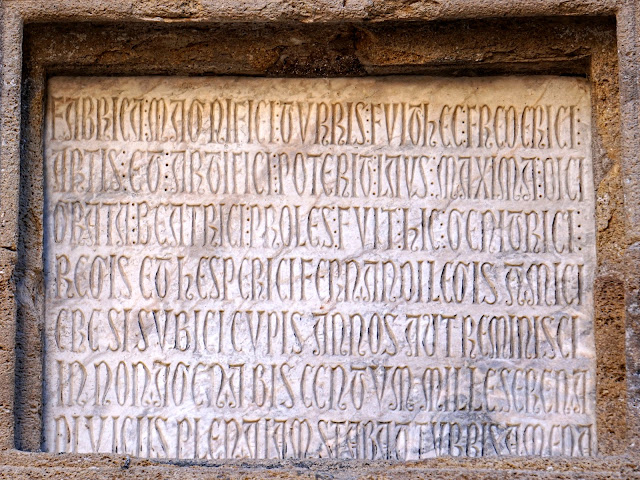 FABRICA:MAGNIFICI:TVRRIS:FVIT hEC:FREDERICI:
ARTIS:ET:ARTIFICI:POTERIT:LAVS:MAXIMA:DICI
GRATA:BEATRICI:PROLES:FVIT hIC:GENITRICI:
REGIS ET hESPERICI FERNANDI LEGIS AMICI
ERE SI SVBICI CVPIS ANNOS AVT REMINISCI
IN NONAGENA BIS CENTVM MILLE SERENA
DIVICIIS PLENA IAM STABAT TVRRIS AMENA